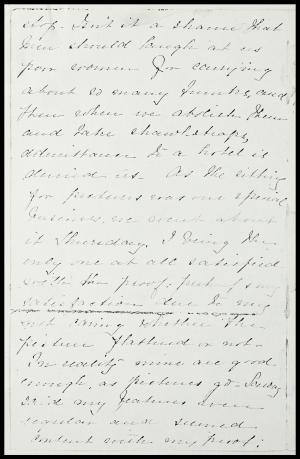 stop. Isn't it a shame that
men should laugh at us
poor women for carrying
about so many trunks, and
then when we abolish them
and take shawl-straps,
admittance to a hotel is
denied us. As the sitting
for pictures was our special
business, we went about
it Thursday, I being the
only one at all satisfied
with the proof, perhaps my
satisfaction due to my
not caring whether the
picture flattered or not.
In reality mine are good
enough, as pictures go.
said my features were
regular and seemed
content with my proof;